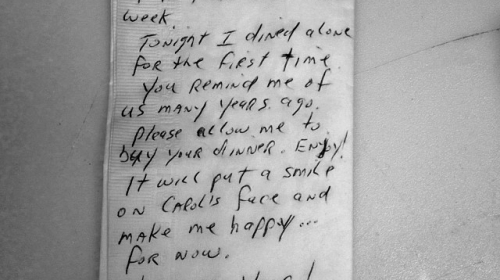 week.
Tonight I dined alone
for the first time.
You remind me of
us many years ago.
Please allow me to
buy your dinner. Enjoy!
It will put a smile
on Carol's face and
make me happy...
for now.